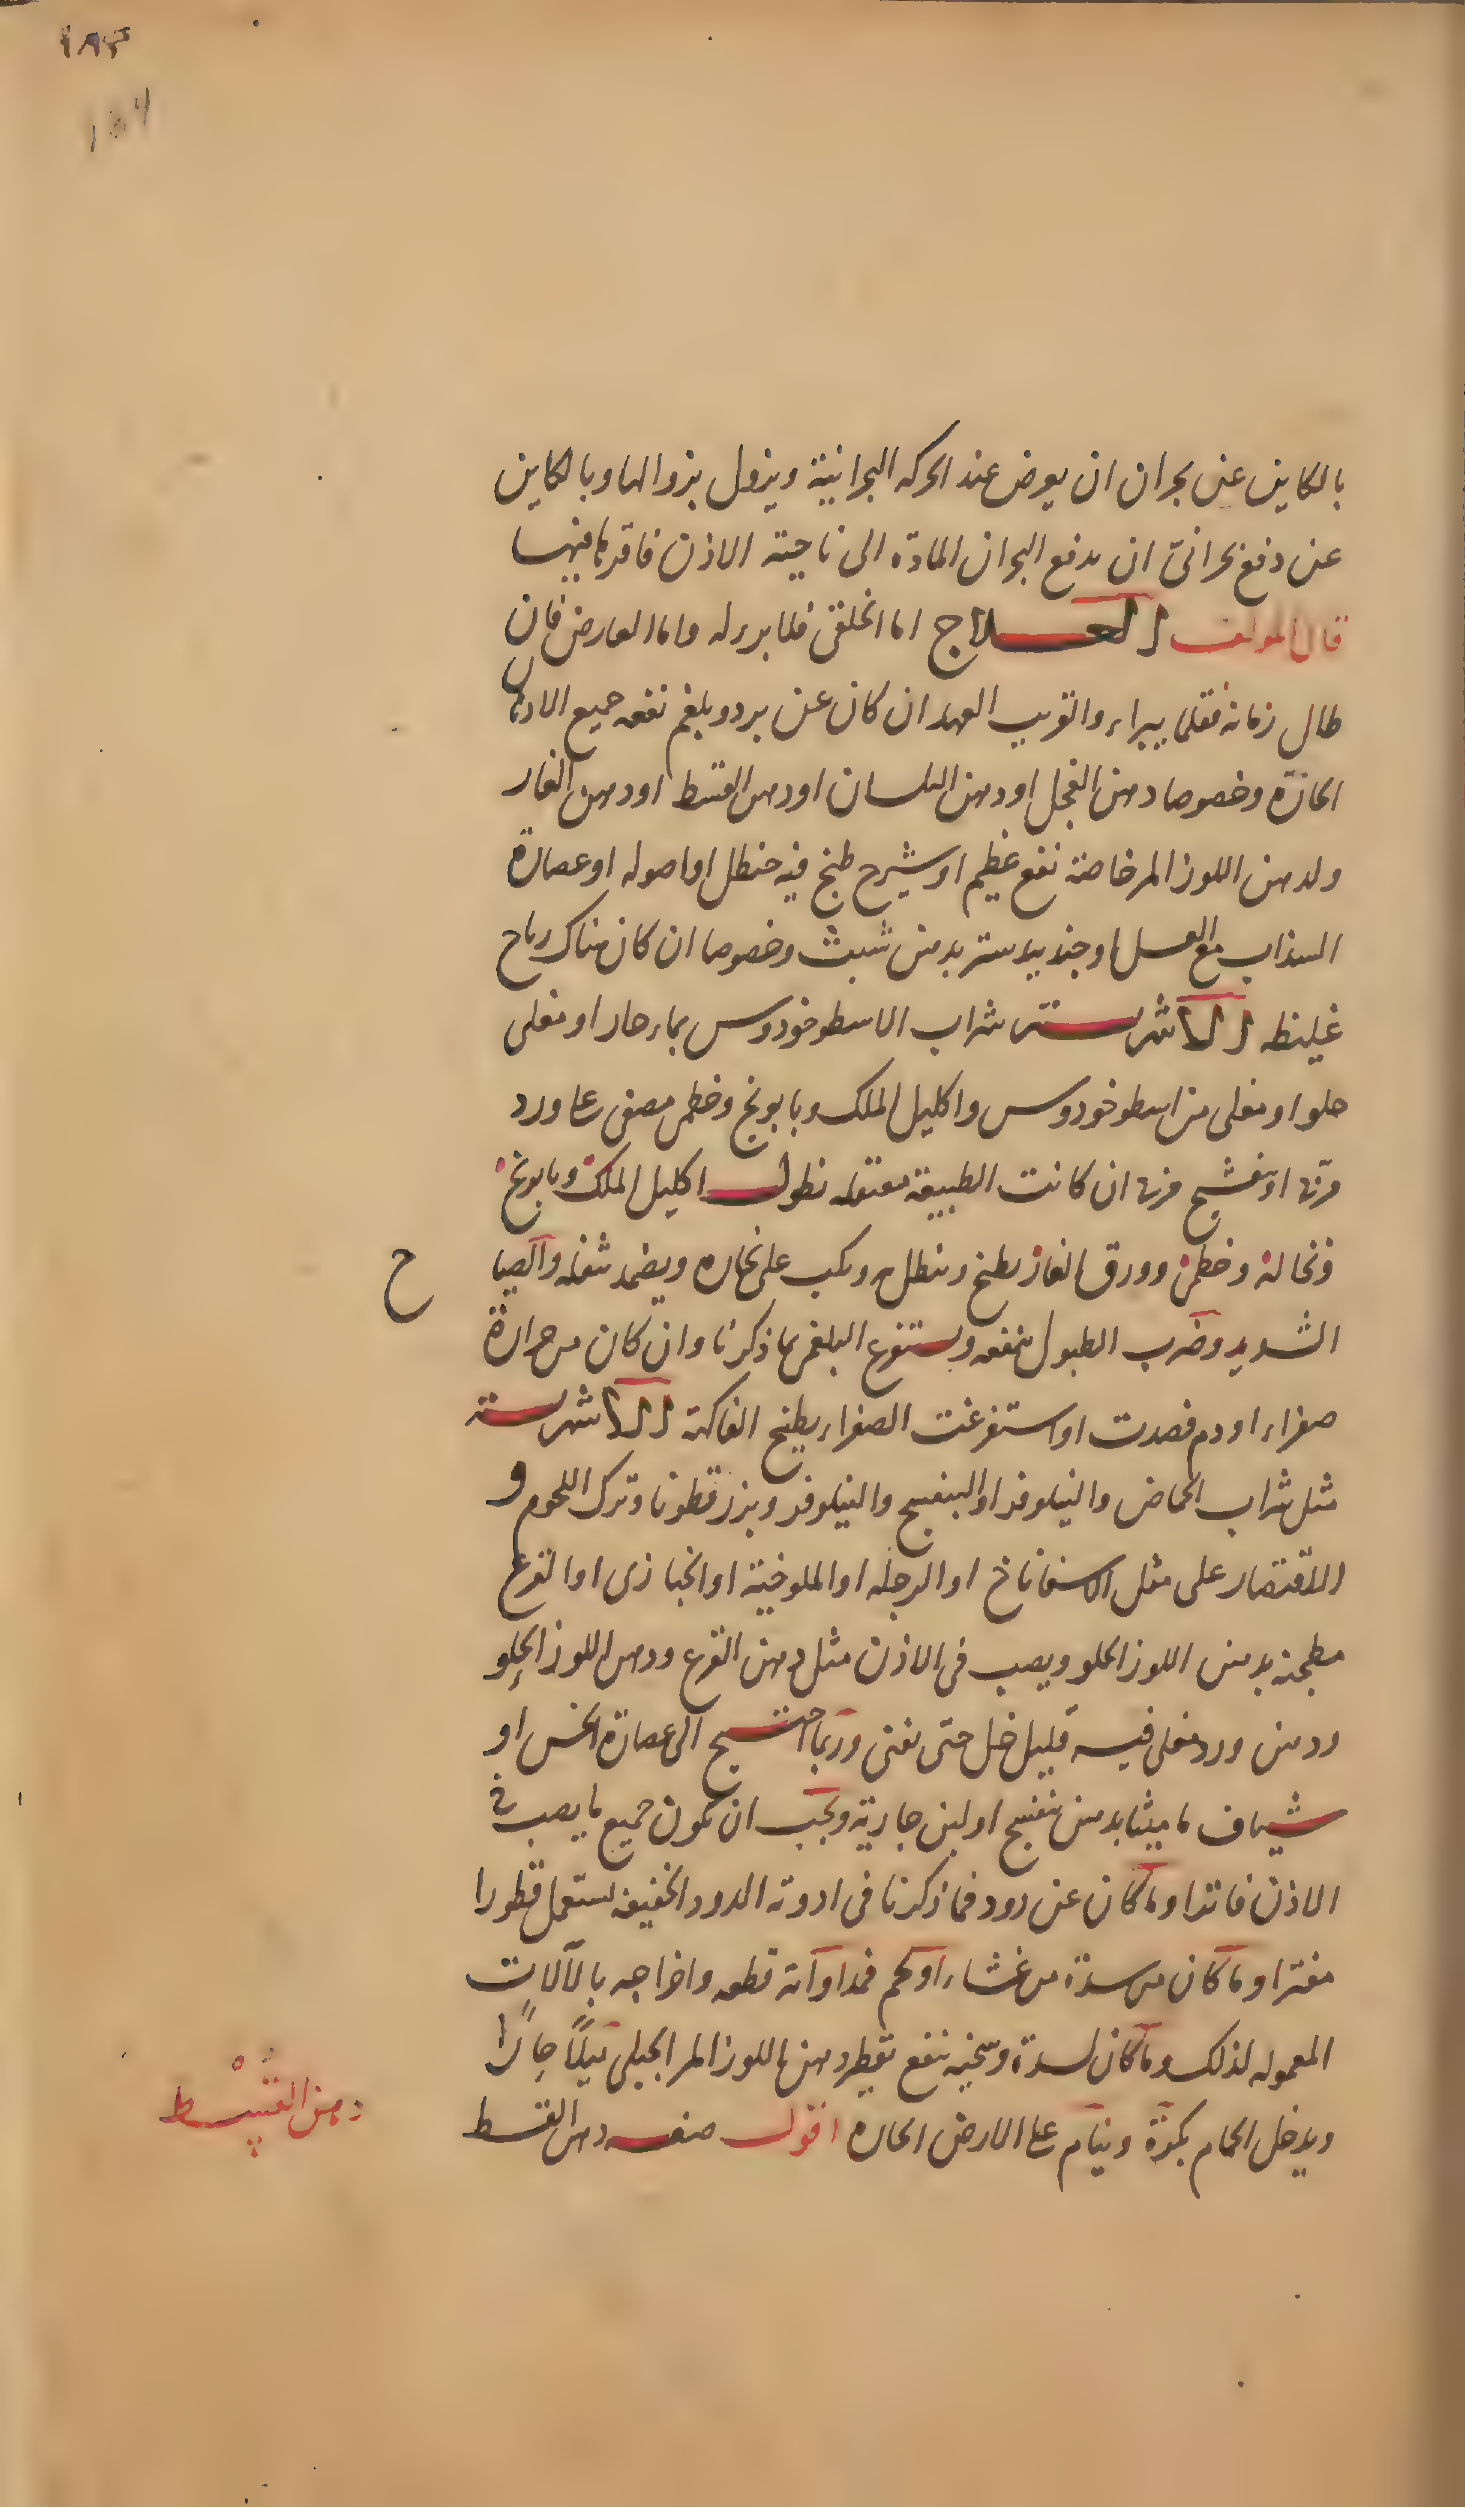 ١٨٣
184
بالكاين عن بحران ان يعرض عند الحركه البحرانية ويزول بزوالها وبالكاين
عن دفع بحرانى ان يدفع البحران المادة الى ناحية الاذن فاقدما فيها
قال المولف العلاج اما الخلقى فلا برء له واما العارض فان
طال زمانه فقلما يبراء والقريب العهد ان كان عن برد وبلغم نفعه جميع الادهان
الحارة وخصوصا دهن الفجل او دهن البلسان او دهن القسط او دهن الغار
ولدهن اللوز المر خاصة نفع عظيم او شيرج طبخ فيه حنطل او اصوله او عصارة
السذاب مع العسل او جندبيدستر بدهن شبث وخصوصا ان كان هناك رياح
غليظه الاشربة شراب الاسطوخودوس بماء حار او مغلى
حلو او مغلى من اسطوخودوس واكليل الملك وبابونج وخطمى مصفى على ورد
مربى او بنفسج مربى ان كانت الطبيعة معتقله نطول اكليل الملك وبابونج
ونخالة وخطمى وورق الغار يطبخ وينطل به ويكب على بخاره ويضمد بثفله والصياح
الشديد وضرب الطبول ينفعه ويستفرغ البلغم بما ذكرنا وان كان من حرارة
صفراء او دم فصدت او استفرغت الصفراء بطبخ الفاكهة الاشربة
مثل شراب الحماض والنيلوفر او البنفسج والنيلوفر وبزر قطونا وترك اللحوم و
الاقتصار على مثل الاسفاناخ او الرجله او الملوخية او الخبازى او القرع
مطجنه بدهن اللوز الحلو ويصب فى الاذن مثل دهن القرع ودهن اللوز الحلو
ودهن ورد مغلى فيه قليل خل حتى يفنى وربما احتيج الى عصارة الخس او
شياف ماميثا بدهن بنفسج او لبن جارية ويجب ان يكون جميع ما يصب فى
الاذن فاترا وما كان عن دود فما ذكرنا فى ادوية الدود الخفيفه يستعمل قطورا
مفترا وما كان من سدة من غشاء او لحم فمداواته قطعه واخراجه بالآلات
المعموله لذلك وما كان لسدة وسخية ينفع تقطير دهن اللوز المر الجبلى ليلا حارا
ويدخل الحمام بكرة وينام على الارض الحاره اقول صفه دهن القسط
دهن القسط